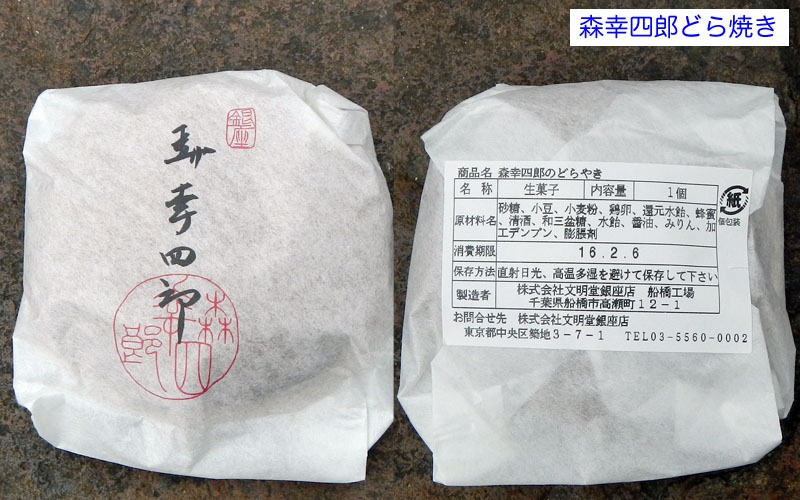 森幸四郎どら焼き
銀座
森幸四郎
森幸四郎
商品名 森幸四郎のどらやき
名 称 生菓子 内容量 1個
原材料名 砂糖、小豆、小麦粉、鶏卵、還元水飴、蜂蜜
、清酒、和三盆糖、水飴、醤油、みりん、加
工デンプン、膨脹剤
消費期限 16.2.6
保存方法 直射日光、高温多湿を避けて保存して下さい
製造者 株式会社文明堂銀座店 船橋工場
千葉県船橋市高瀬町12-1
お問合せ先 株式会社文明堂銀座店
東京都中央区築地3-7-1 TEL03-5560-0002
紙
個包装